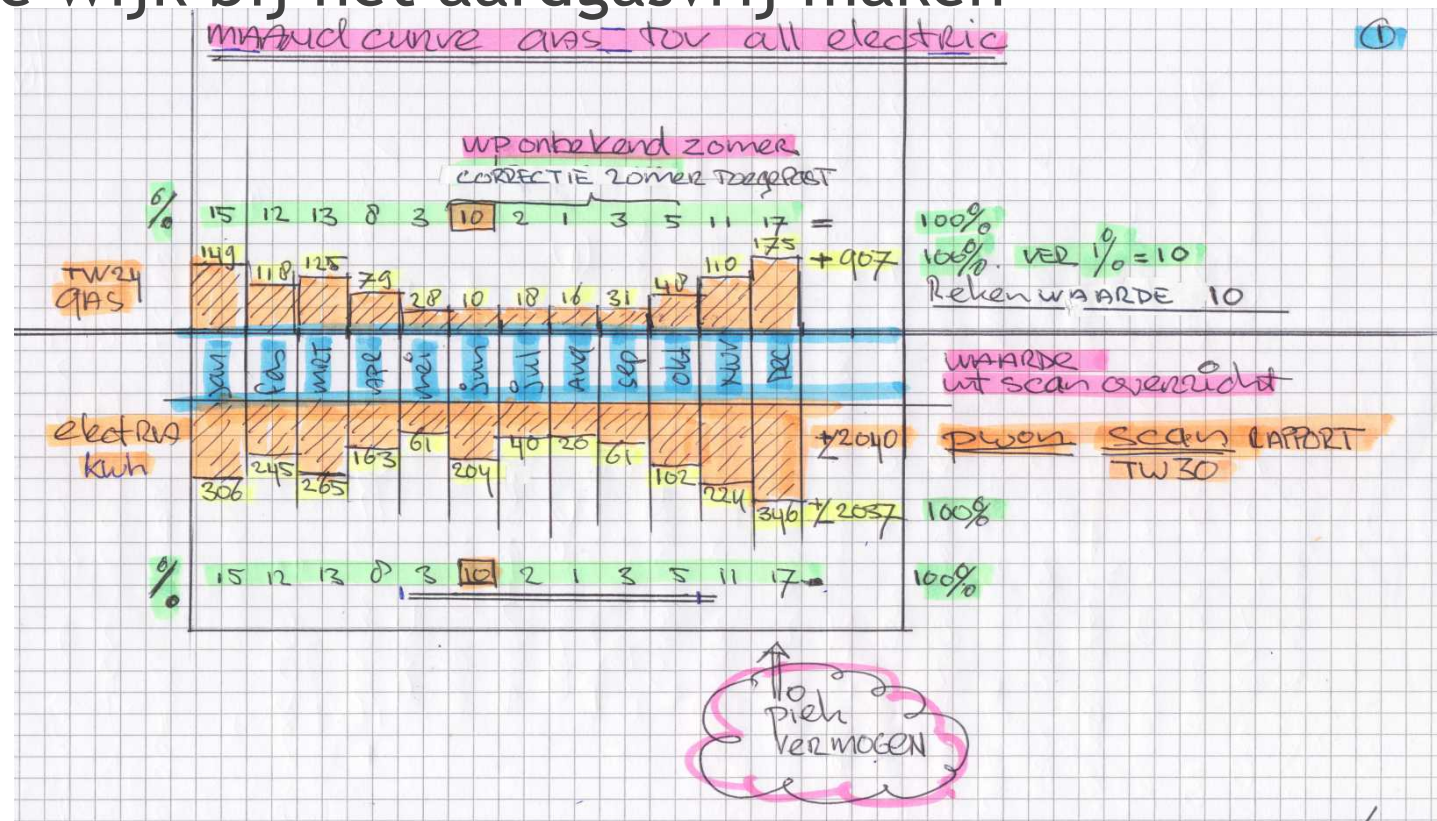 e wijk bij het aardgasvrij maken
maand curve gas tov all electric
1
WP onbekend zomer
CORRECTIE ZOMER TOEGEPAST
% 15 12 13 8 3 10 2 1 3 5 11 17 = 100%
149 118 125 79 28 10 18 16 31 48 110 175 + 907 100%. VER 1% = 10
TW24
GAS
Rekenwaarde 10
jan feb mrt apr mei jun jul aug sep okt nov dec
WAARDE
uit scan overzicht
electra
kwh
306 245 265 163 61 204 40 20 61 102 224 346
+/2040
pwon scan RAPPORT
TW30
+/2037 100%
% 15 12 13 8 3 10 2 1 3 5 11 17 = 100%
piek
VERMOGEN